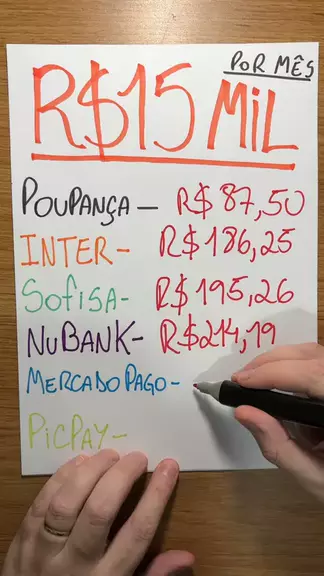 POR MÊS
R$15 MIL
POUPANÇA - R$ 87,50
INTER - R$ 186,25
SOFISA - R$ 195,26
NUBANK - R$214,19
MERCADO PAGO -
PICPAY -